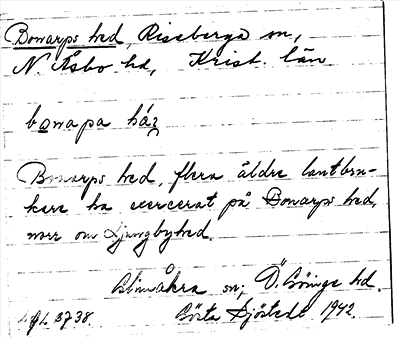 Bonarps hed, Riseberga sn,
N. Åsbo hd, Krist. län
bonapa
Bonarps hed, flera äldre lantbru-
kare ha exercerat på Bonarps hed,
mer om Ljungbyhed.
Glimåkra sn, Ö. Göinge hd.
3738. Gösta Sjöstedt 1942.